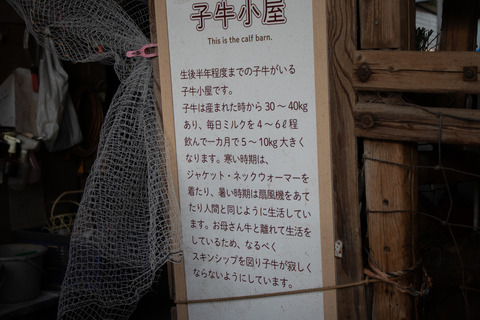 子牛小屋
This is the calf barn.
生後半年程度までの子牛がいる
子牛小屋です。
子牛は産まれた時から 30～40kg
あり、毎日ミルクを 4～6ℓ程
飲んで一カ月で 5～10kg 大きく
なります。寒い時期は、
ジャケット・ネックウォーマーを
着たり、暑い時期は扇風機をあて
たり人間と同じように生活してい
ます。お母さん牛と離れて生活を
しているため、なるべく
スキンシップを図り子牛が寂しく
ならないようにしています。